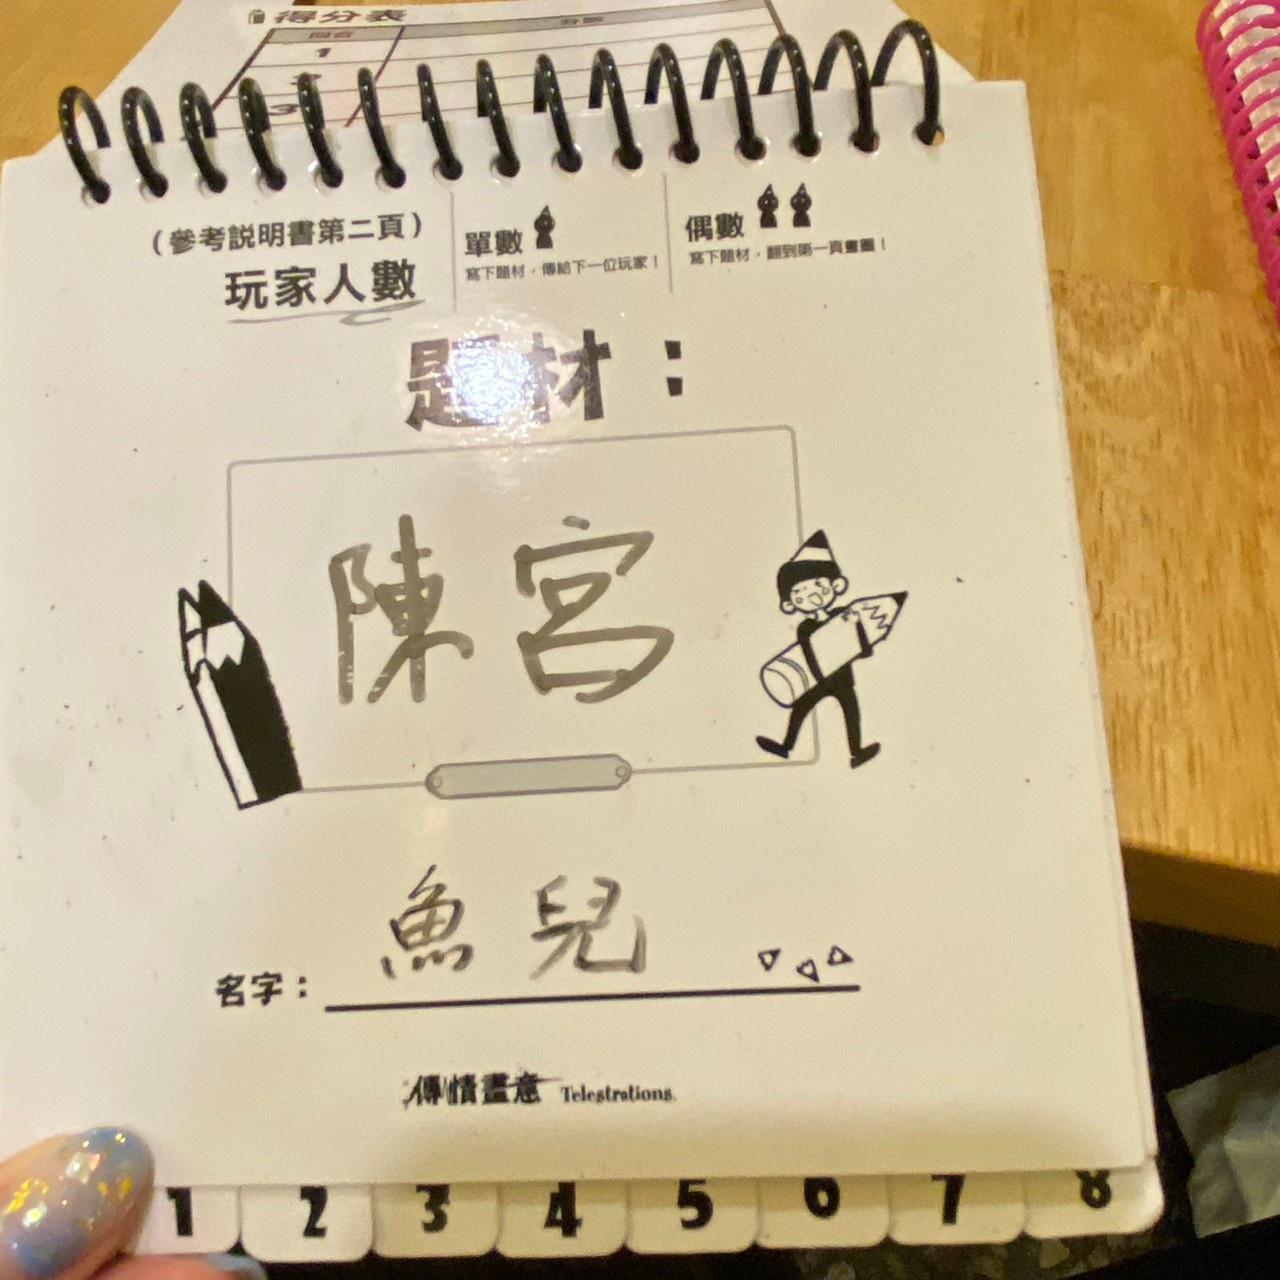 得分表
回合 分數
1
2
3
(參考説明書第二頁)
玩家人數
單數
寫下題材，傳給下一位玩家！
偶數
寫下題材，翻到第一頁畫圖！
題材：
陳宮
魚兒
名字：
傳情畫意 Telestrations
1 2 3 4 5 6 7 8